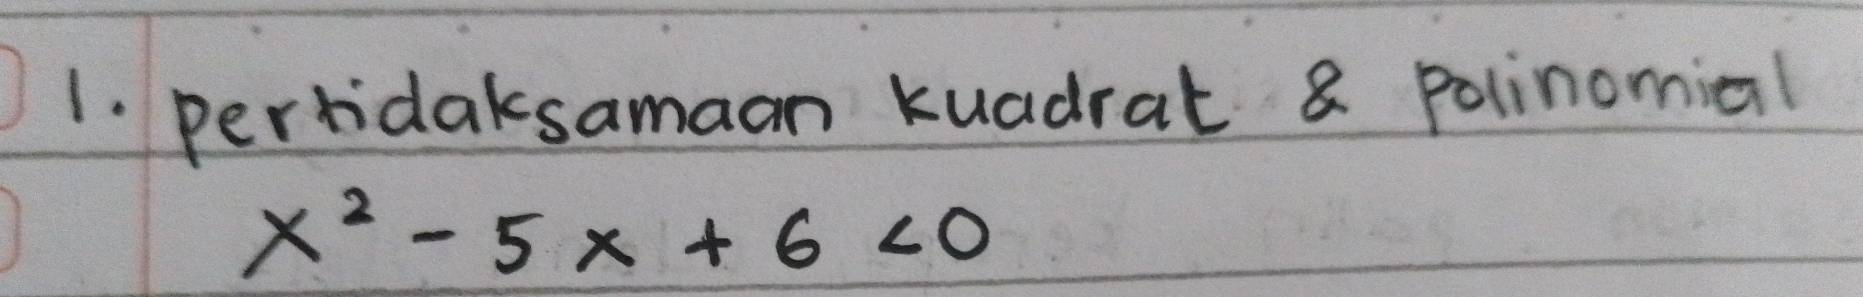 1. pertidaksamaan kuadrat & Polinomial
x² - 5x + 6 < 0